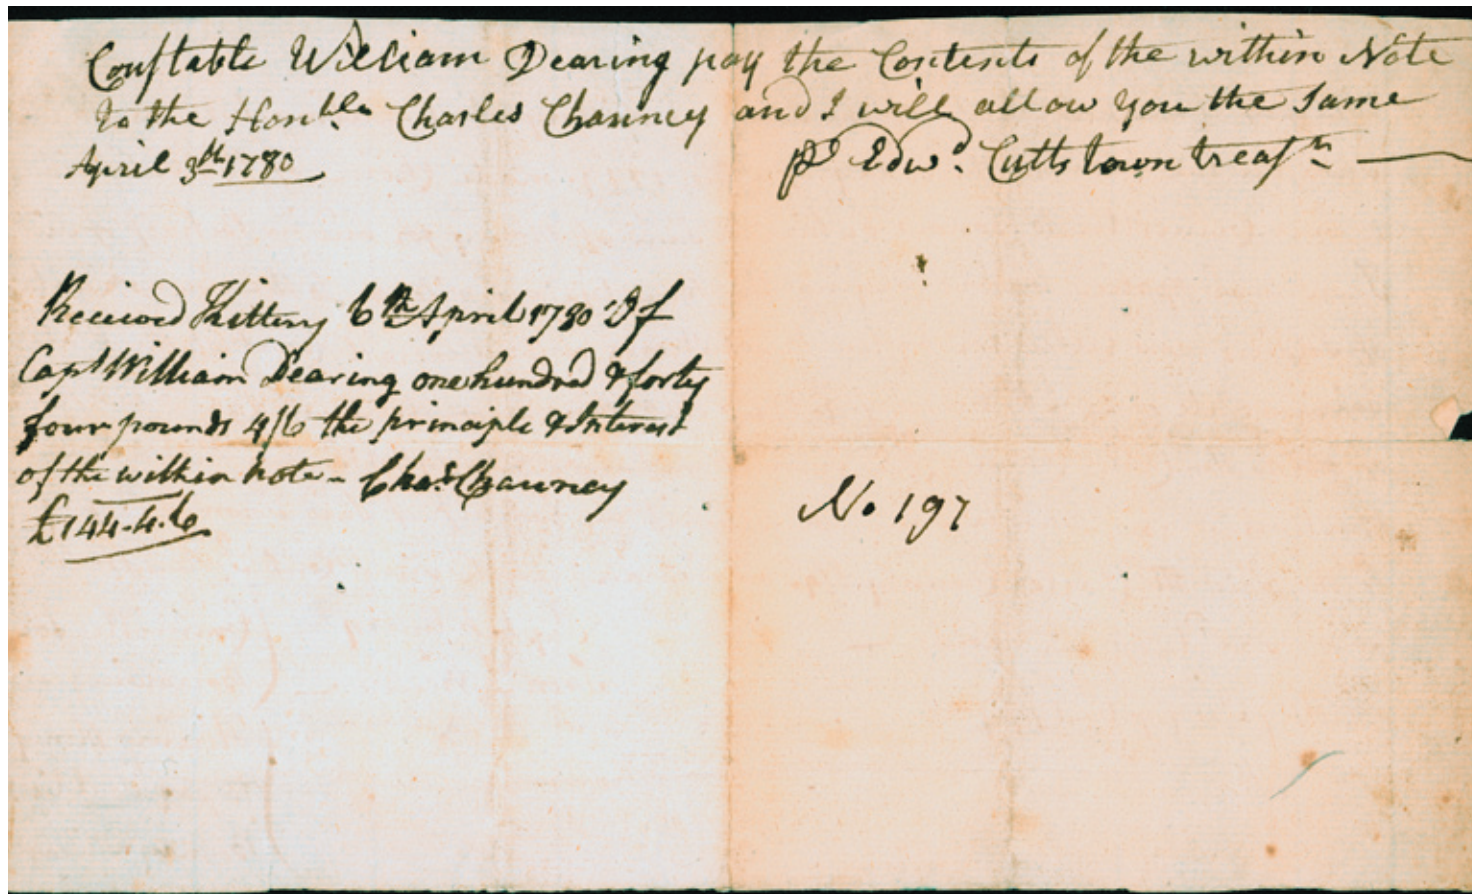 Constable William Dearing pay the Contents of the within Note
to the Honble Charles Chauncy and I will allow you the Same
April 3th 1780
pr Edwd. Cutts town treasr
Received Kittery 6th April 1780 Of
Capt William Dearing one hundred & forty
four pounds 4/6 the principle & Interest
of the within note - Chas. Chauncy
£144-4-6
No 197